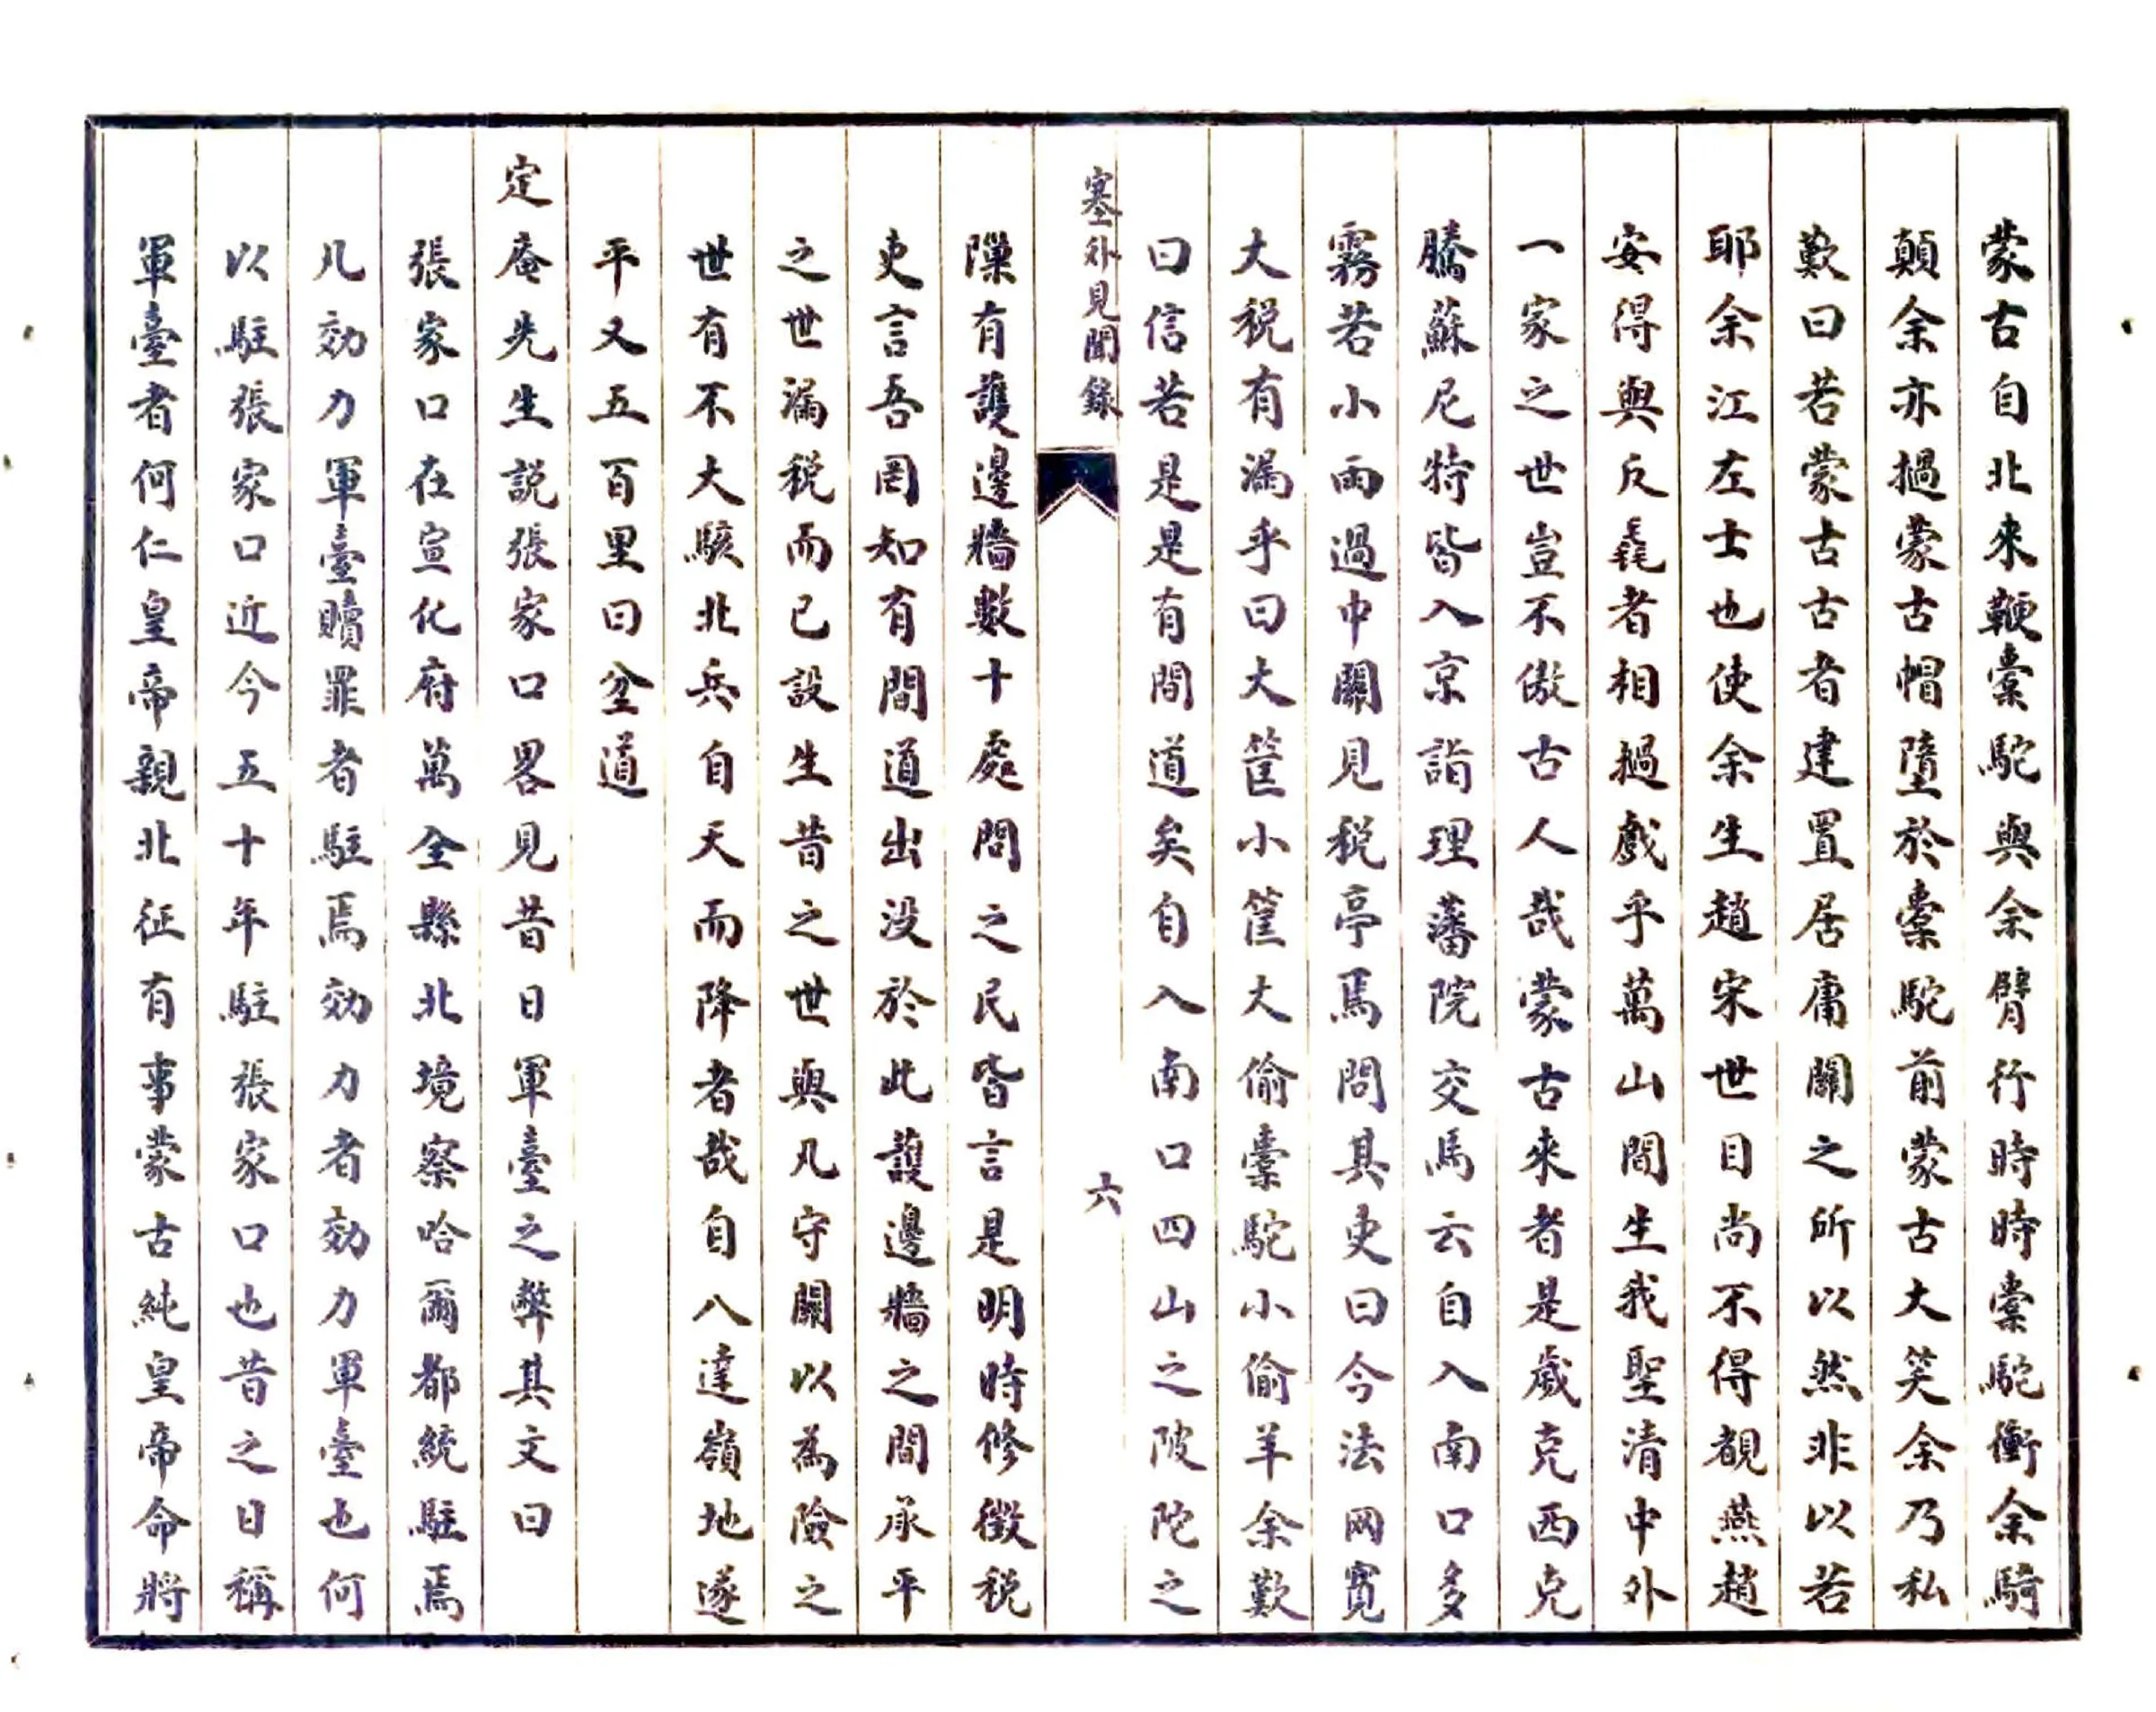 蒙古自北來鞭橐駝與余臂行時時橐駝衝余騎
顛余亦撾蒙古帽墮於橐駝前蒙古大笑余乃私
歎曰若蒙古古者建置居庸關之所以然非以若
耶余江左士也使余生趙宋世目尚不得覩燕趙
安得與反毳者相撾戲乎萬山間生我聖清中外
一家之世豈不傲古人哉蒙古來者是歲克西克
騰蘇尼特皆入京詣理藩院交馬云自入南口多
霧若小雨過中關見稅亭焉問其吏曰今法网寬
大稅有漏乎曰大筐小筐大偷橐駝小偷羊余歎
曰信若是是有間道矣自入南口四山之陂陀之
塞外見聞錄
六
隟有護邊牆數十處問之民皆言是明時修徵稅
吏言吾固知有間道出没於此護邊牆之間承平
之世漏稅而已設生昔之世與凡守關以為險之
世有不大駭北兵自天而降者哉自八達嶺地遂
平又五百里曰坌道
定庵先生説張家口畧見昔日軍臺之弊其文曰
張家口在宣化府萬全縣北境察哈爾都統駐焉
凡効力軍臺贖罪者駐焉効力者効力軍臺也何
以駐張家口近今五十年駐張家口也昔之日稱
軍臺者何仁皇帝親北征有事蒙古純皇帝命將